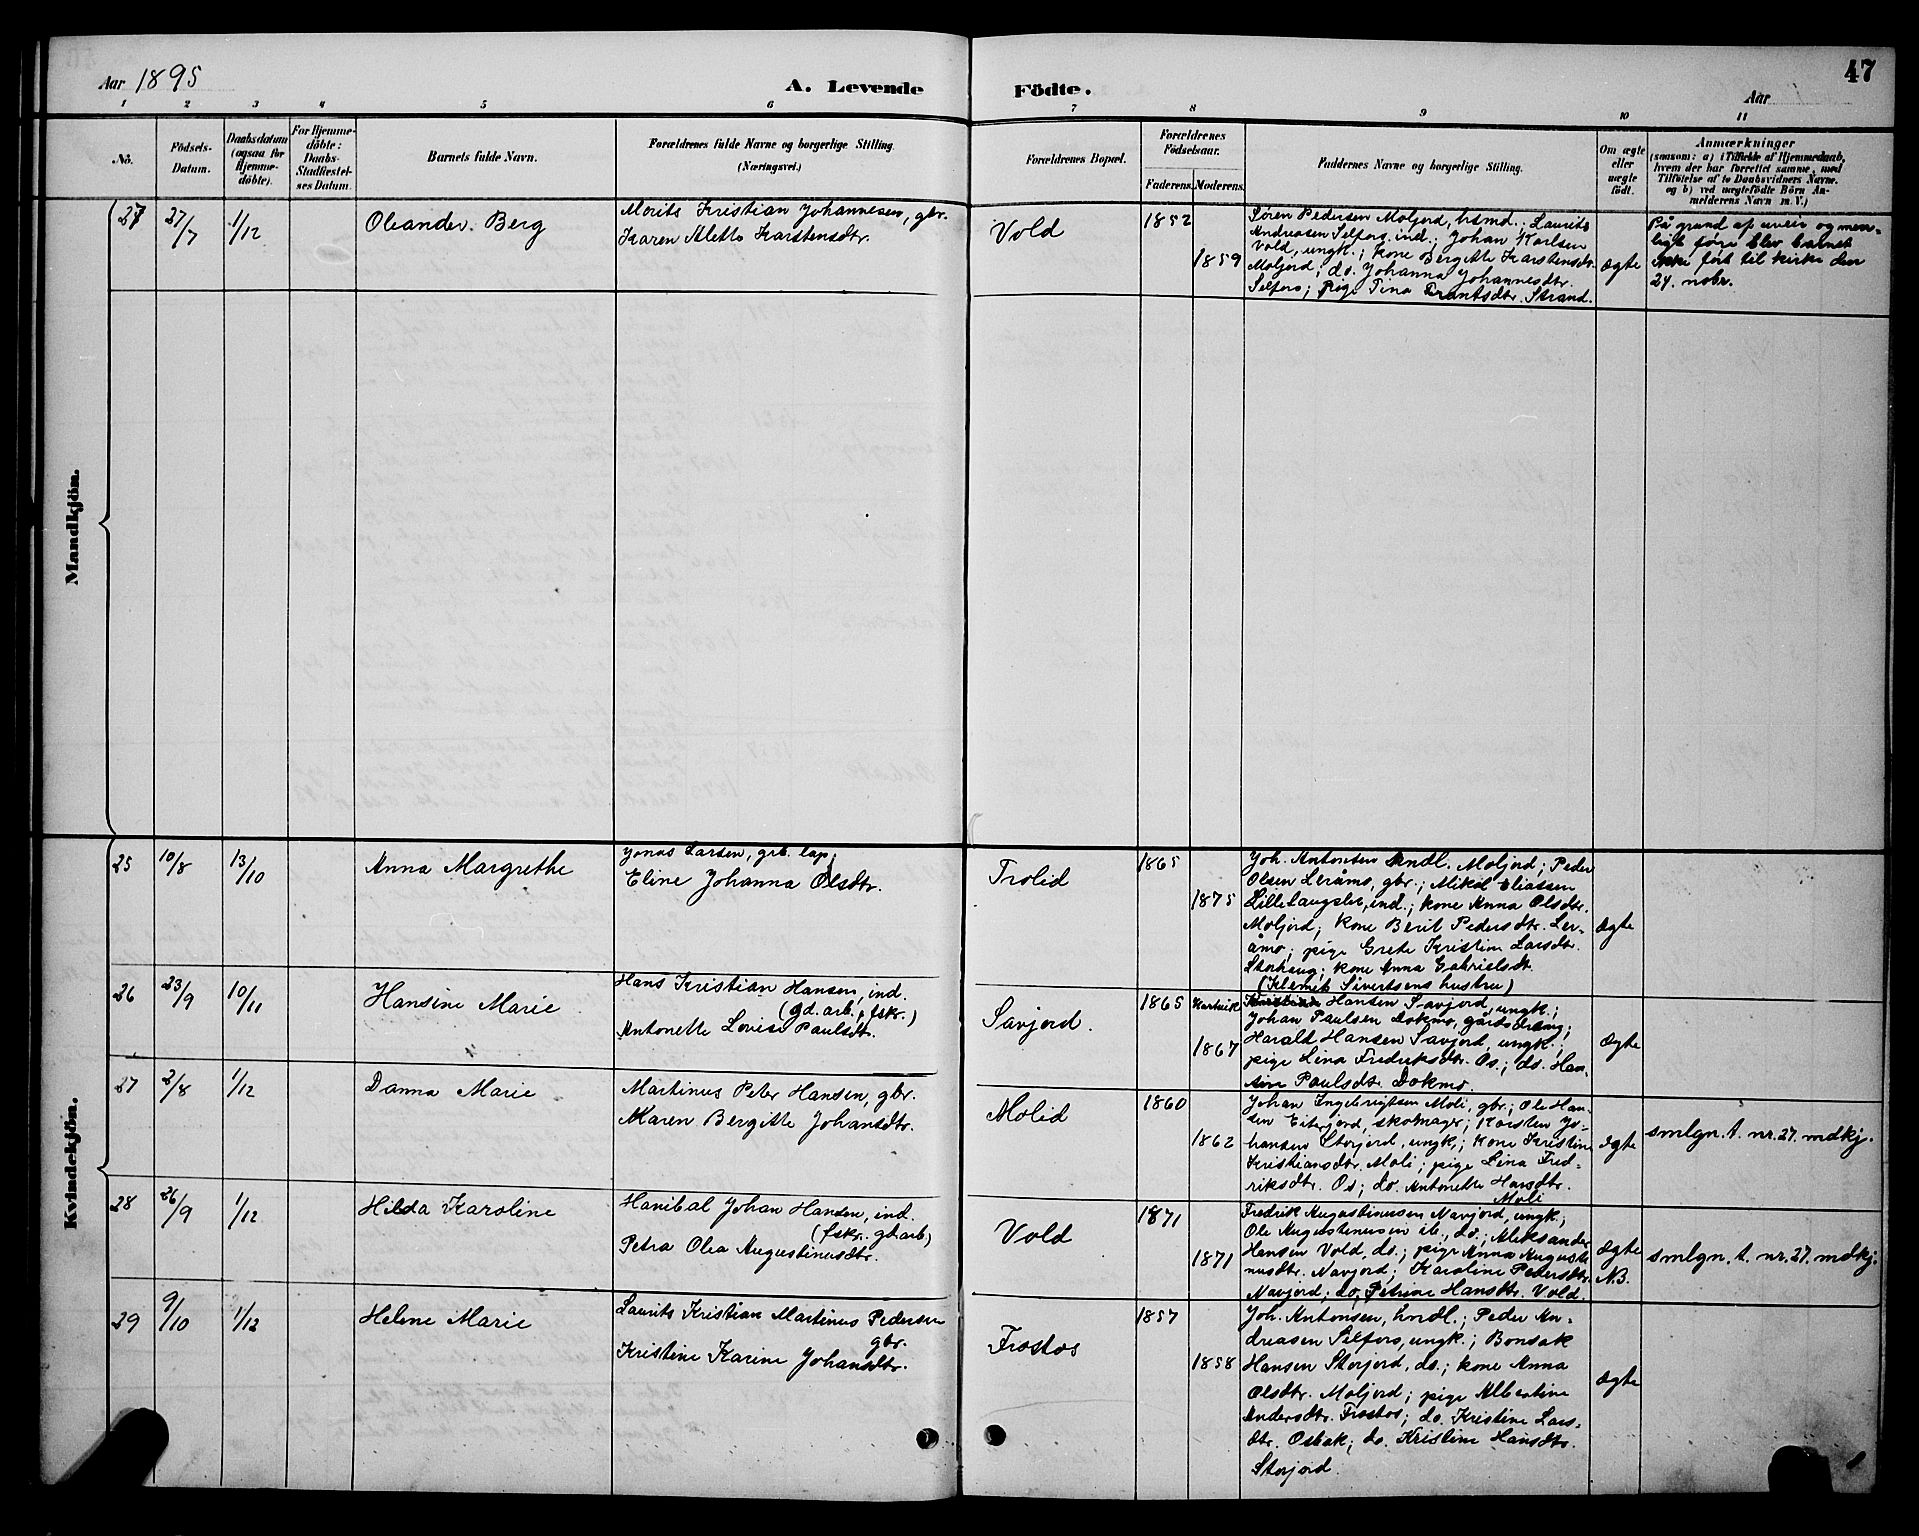 Aar 1895
A. Levende Födte.
47
Aar
1 2 3 4 5 6 7 8 9 10 11
No.
Födsels-
Datum.
Daabsdatum
(ogsaa for
Hjemme-
döbte).
For Hjemme-
döbte:
Daabs-
Stadfæstel-
ses Datum.
Barnets fulde Navn.
Forældrenes fulde Navne og borgerlige Stilling.
(Næringsvei.)
Forældrenes Bopæl.
Forældrenes
Födselsaar.
Faderens. Moderens.
Faddernes Navne og borgerlige Stilling.
Om ægte
eller
uægte
födt.
Anmærkninger
(saasom: a) i Tilfælde af Hjemmedaab,
hvem der har forrettet samme, med
Tilföielse af to Daabsvidners Navne,
og b) ved uægtefödte Börn An-
melderens Navn m. V.)
Mandkjön.
27 27/7 1/12 Oleander Berg
Morits Kristian Johannesen, gbr.
Karen Alette Karstensdtr.
Vold
1852
1859
Søren Pedersen Moljord, hsmd.; Laurits
Andreasen Selfors, ind.; Johan Karlsen
Vold, ungk.; kone Bergitte Karstensdtr.
Moljord; do. Johanna Johannesdtr.
Selfors; pige Tina Frantsdtr. Strand.
ægte
På grund af uveir og men-
ligt føre blev barnet
ikke ført til kirke den
24. nobr.
Kvindekjön.
25 10/8 13/10 Anna Margrethe
Jonas Larsen, grb. lap
Eline Johanna Olsdtr.
Trolid
1865
1875
Joh. Antonsen hndl. Moljord; Peder
Olsen Leråmo, gbr.; Mikal Eliassen
Lille Laugsler, ind.; kone Anna Olsdtr.
Moljord; kone Berit Pedersdtr. Ler-
åmo; pige Grete Kristine Larsdtr.
Storhaug; kone Anna Gabrielsdt.
(Klemet Sivertsens hustru)
ægte
26 23/9 10/11 Hansine Marie
Hans Kristian Hansen, ind.
(gd. arb., fskr.)
Antonette Lovise Paulsdt.
Savjord.
1865
1867
Hartvik Hansen Savjord, ungk.;
Johan Paulsen Dokmo, gårdsdræng;
Harald Hansen Savjord, ungk.;
pige Lina Fredriksdtr. Os; do. Han-
sine Paulsdtr. Dokmo.
ægte
27 2/8 1/12 Danna Marie
Martinus Peter Hansen, gbr.
Maren Bergitte Johansdtr.
Molid
1860
1862
Johan Ingebrigtsen Moli, gbr.; Ole Han-
sen Eiterjord, skomager; Karsten Jo-
hansen Storjord, ungk.; kone Kristine
Kristiansdtr. Moli; pige Lina Fred-
riksdtr. Os; do. Antonette Hansdtr.
Moli
ægte
smlgn. t. nr. 27. mdkj.
28 26/9 1/12 Hilda Karoline
Hanibal Johan Hansen, ind.
(fskr. gd arb)
Petra Olea Augustinusdtr.
Vold
1871
1871
Fredrik Augustinussen Navjord, ungk.;
Ole Augustinussen ib., do.; Aleksander
Hansen Vold, do.; pige Anna Augusti-
nusdtr. Navjord; Karoline Pedersdtr.
Navjord; do. Petrine Hansdtr. Vold.
ægte
N.B.
smlgn. t. nr. 27. mdkj.
29 9/10 1/12 Helene Marie
Laurits Kristian Martinus Pedersen
gbr.
Kristine Karine Johansdtr.
Frostos
1857
1858
Joh. Antonsen, hndl.; Peder An-
dreasen Selfors, ungk.; Bonsak
Hansen Storjord, do.; kone Anna
Olsdtr. Moljord; pige Albertine
Andersdtr. Frostos; do. Kristine Lars-
dtr. Osbak; do. Kristine Hansdtr.
Storjord.
ægte